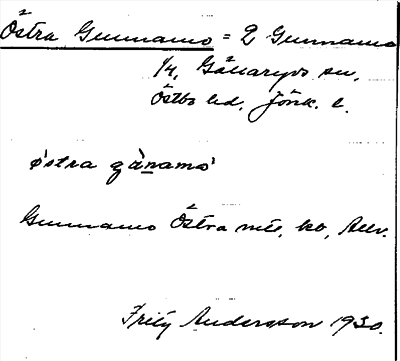 Östra Gunnamo = 2 Gunnamo
1/4, Gällaryds sn.
Östbo hd. Jönk. l.
östra gànamo
Gunnamo Östra
Fritz Andersson 1930.